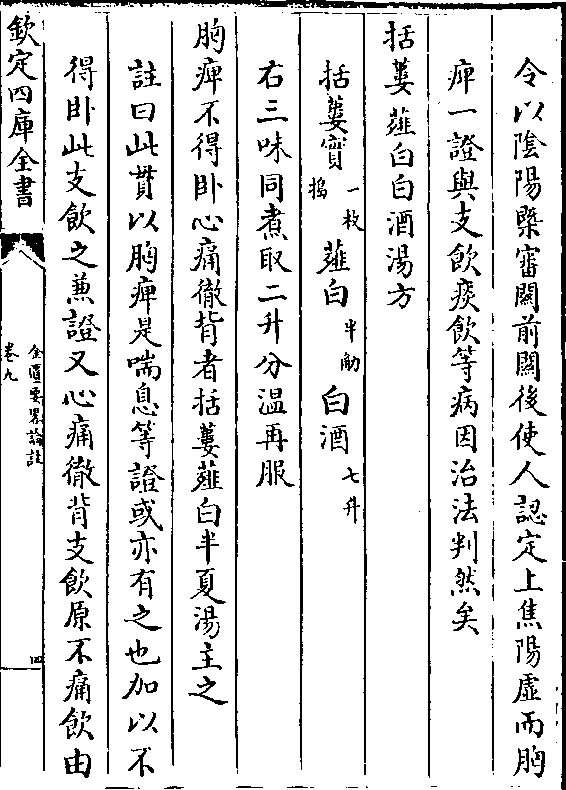 令以陰陽槩審闗前闗後使人認定上焦陽虛而胸
痺一證與支飲痰飲等病因治法判然矣
括蔞薤白白酒湯方
括蔞實一枚搗 薤白半觔 白酒七升
右三味同煮取二升分溫再服
胸痺不得卧心痛徹背者括蔞薤白半夏湯主之
註曰此貫以胸痺是喘息等證或亦有之也加以不
得卧此支飲之兼證又心痛徹背支飲原不痛飲由
欽定四庫全書
金匱要畧論註
卷九
四